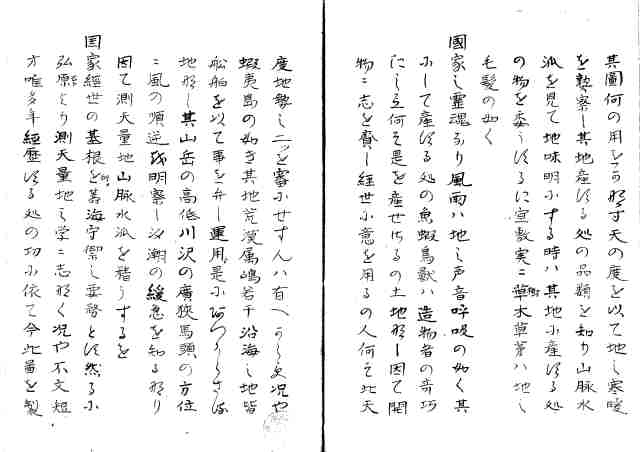 其圖何の用をか那す天の度を以て地し寒暖
を熟察し其地産する処の品類を知り山脉水
派を見て地味明小する時ハ其地小産する処
の物を委うするに宣数実ニ草木草第ハ地し
毛髪の如く
國家之霊魂なり風雨ハ地之声音呼吸の如く其
小して産する処の魚蝦鳥獣ハ造物者の奇巧
にし且何そ是を産せさるの土地那し因て開
物ニ志を費し経世小意を用るの人何そ此天
度地勢之二ツを審小せすんハ有へからす况や
蝦夷島の如き其地荒漠属嶋若干沿海之地皆
船舶を以て事を弁し運用是小
地形し其山岳の高低川沢の廣狭馬頭の方位
ニ風の順逆を明察し汐潮の緩急を知る那り
因て測天量地山脉水派を精うするを
国家経世の基根を為海守禦之要務とす然る小
弘原より測天量地之学ニ志那く况や不文短
才唯多年経歴する処の功小依て今此圖を製